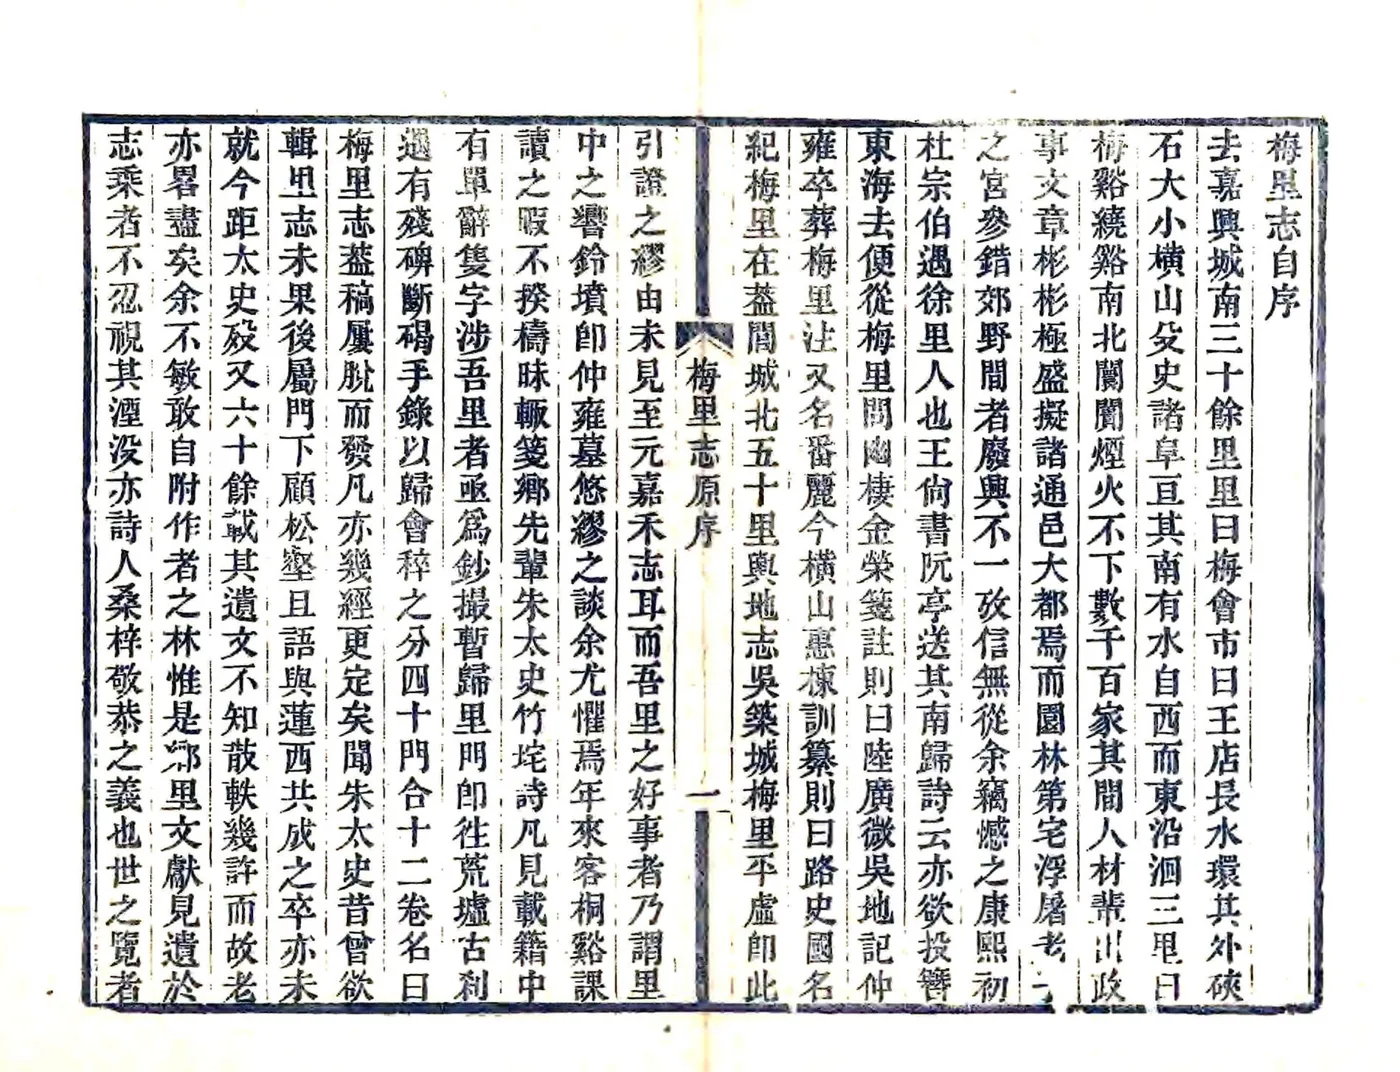 梅里志自序
去嘉興城南三十餘里里曰梅會市曰王店長水環其外硤
石大小橫山殳史諸阜亘其南有水自西而東沿洄三里曰
梅谿繞谿南北闤闠煙火不下數千百家其間人材輩出政
事文章彬彬極盛擬諸通邑大都焉而園林第宅浮屠老
之宮參錯郊野間者廢興不一攷信無從余竊憾之康熙初
杜宗伯遇徐里人也王尙書阮亭送其南歸詩云亦欲投簪
東海去便從梅里問幽棲金榮箋註則曰陸廣微吳地記仲
雍卒葬梅里注又名番麗今橫山惠棟訓纂則曰路史國名
紀梅里在蓋閭城北五十里輿地志吳築城梅里平虛卽此
梅里志原序
一
引證之繆由未見至元嘉禾志耳而吾里之好事者乃謂里
中之響鈴墳卽仲雍墓悠繆之談余尤懼焉年來客桐谿課
讀之暇不揆檮昧輒箋鄉先輩朱太史竹垞詩凡見載籍中
有單辭隻字涉吾里者亟爲鈔撮暫歸里門卽徃荒墟古刹
遇有殘碑斷碣手錄以歸會稡之分四十門合十二卷名曰
梅里志葢稿屢脫而發凡亦幾經更定矣聞朱太史昔曾欲
輯里志未果後屬門下顧松壑且語與蓮西共成之卒亦未
就今距太史歿又六十餘載其遺文不知散軼幾許而故老
亦畧盡矣余不敏敢自附作者之林惟是鄉里文獻見遺於
志乘者不忍視其湮没亦詩人桑梓敬恭之義也世之覽者